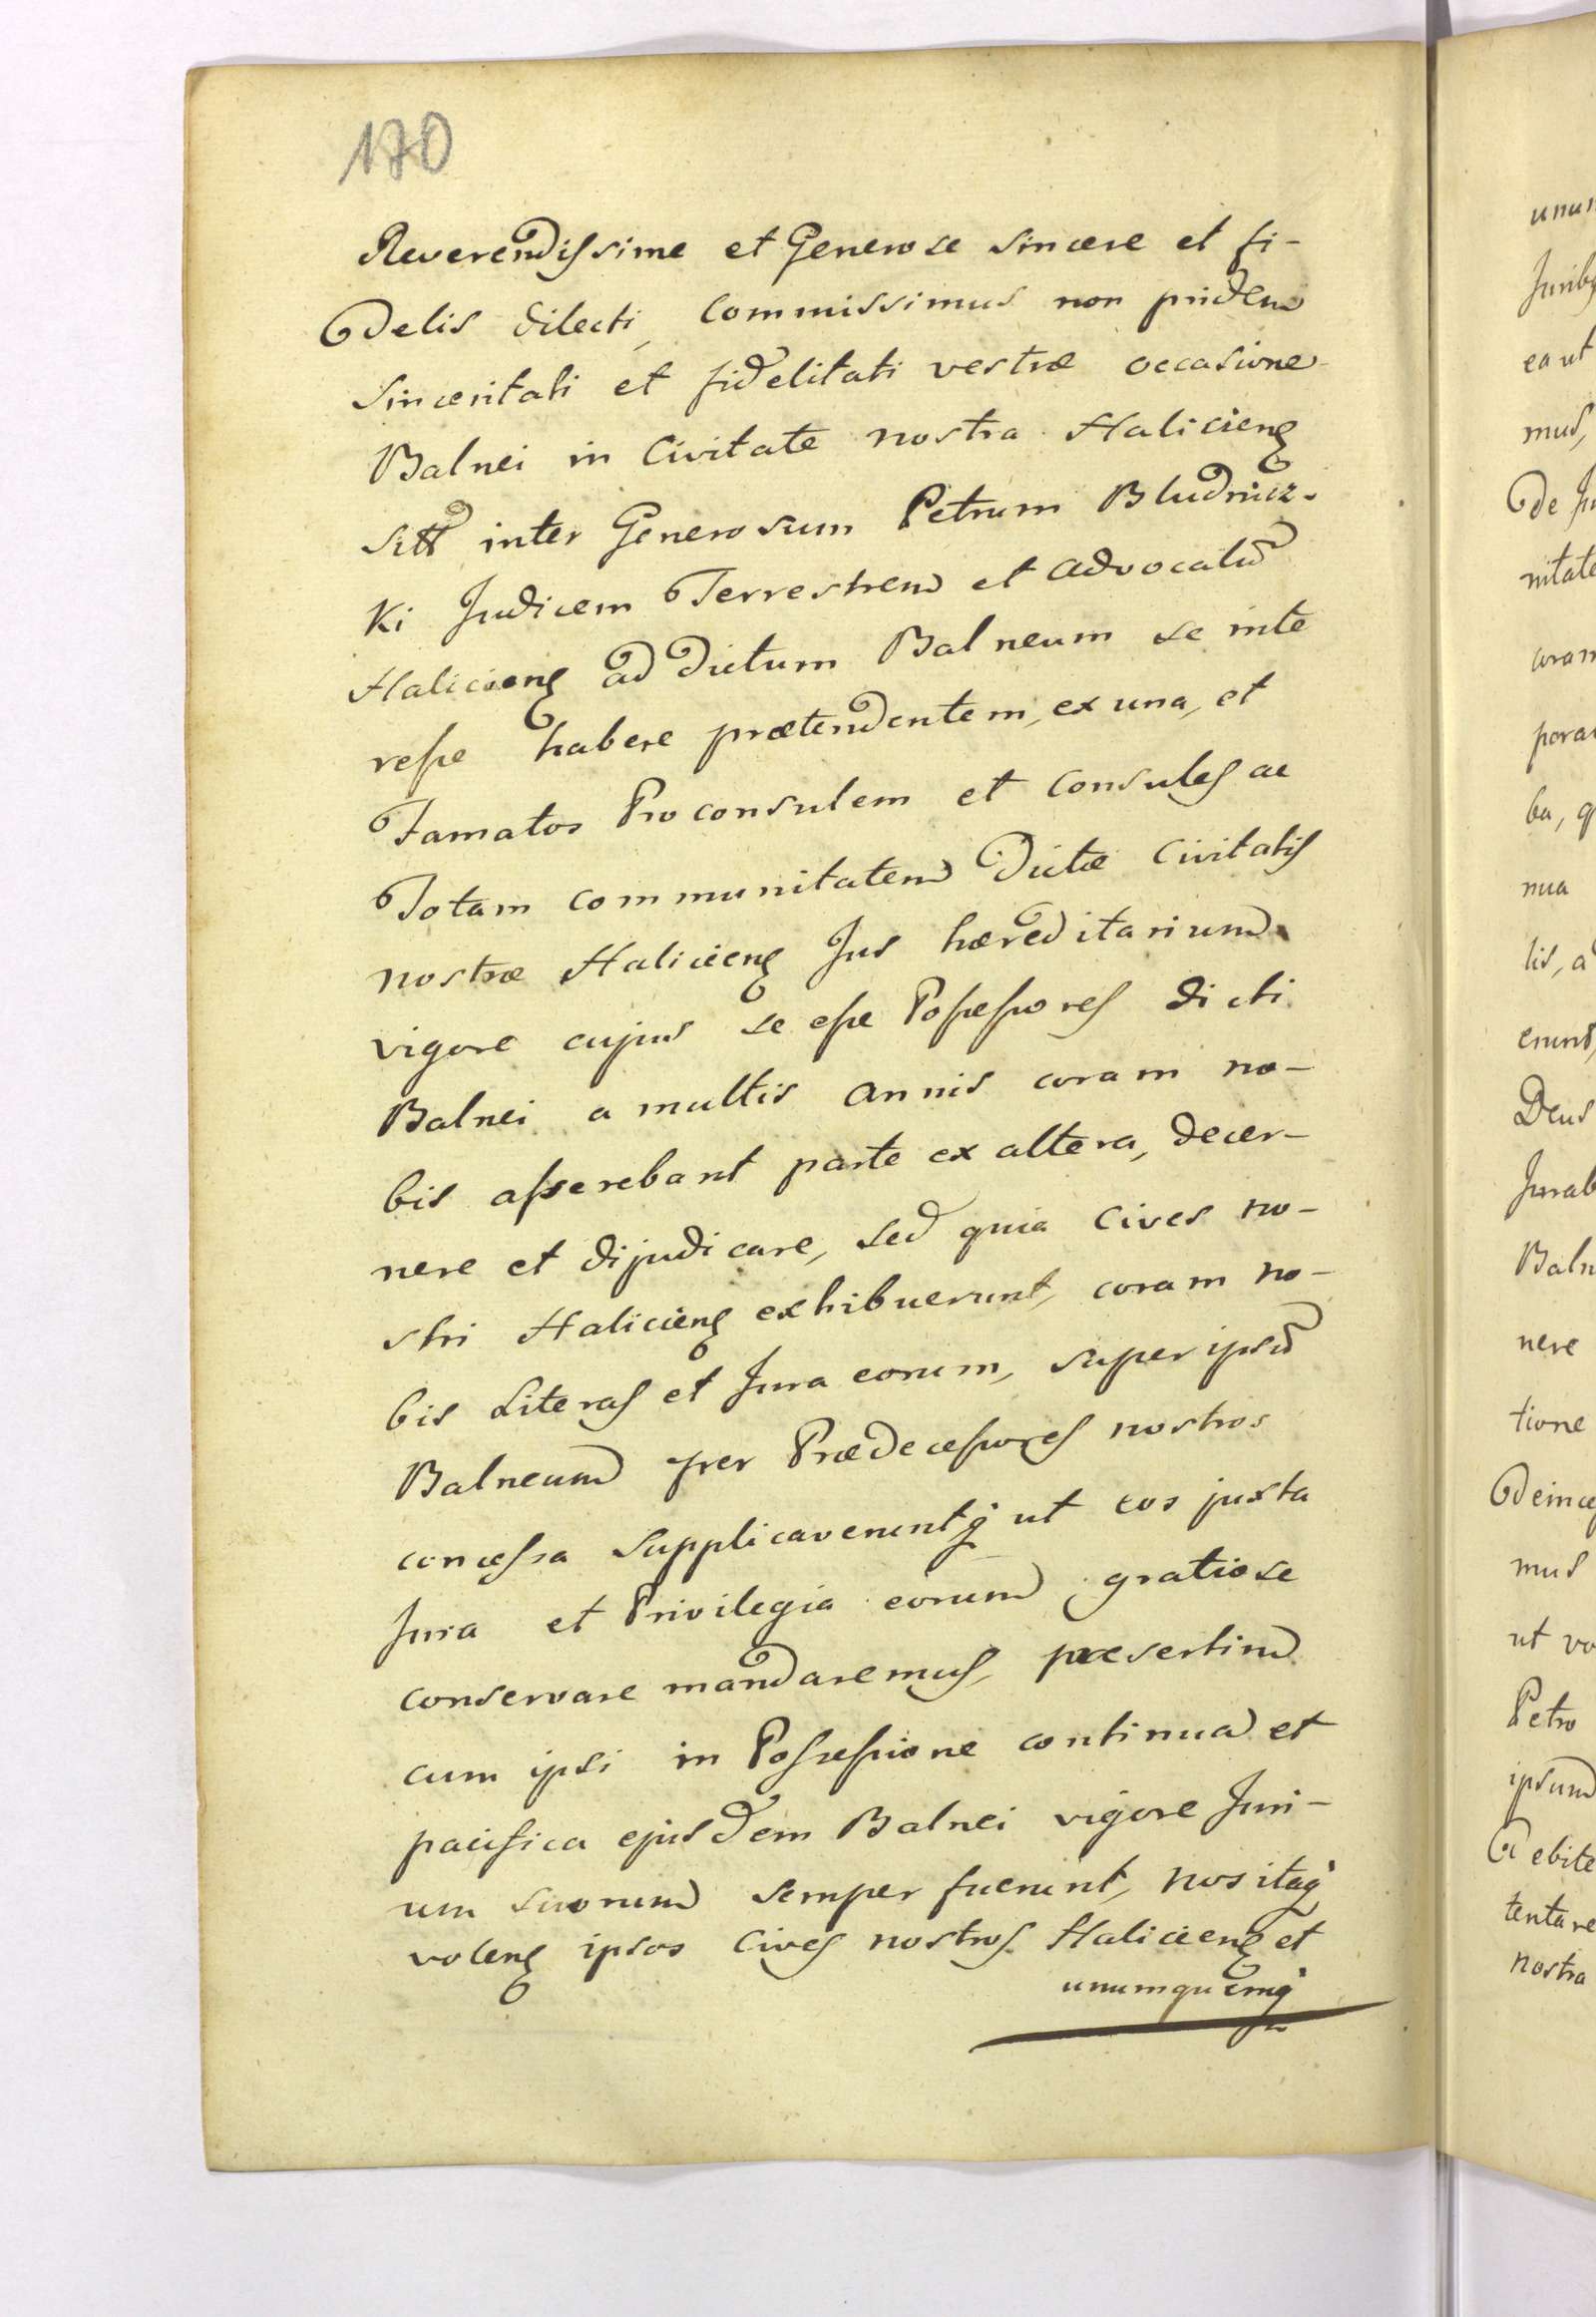 170
Reverendissime et Generose sincere et fi-
delis dilecti, commissimus non pridem
sinceritati et fidelitati vestræ occasione
Balnei in Civitate nostra Haliciens
sitt inter Generosum Petrum Bludnicz-
ki Judicem Terrestrem et Advocatū
Haliciens ad dictum Balneum se inte
resse habere prætendentem, ex una, et
Famatos Proconsulem et Consules ac
Totam communitatem dictæ Civitatis
nostræ Haliciens Jus hæreditarium
vigore cujus se esse Possessores dicti
Balnei a multis annis coram no-
bis asserebant parte ex altera, decer-
nere et dijudicare, sed quia Cives no-
stri Haliciens exhibuerunt, coram no-
bis Literas et Jura eorum, super ipsū
Balneum per Prædecessores nostros
concessa supplicaveruntq ut eos juxta
Jura et Privilegia eorum gratiose
conservare mandaremus, præsertim
cum ipsi in Possessione continua et
pacifica ejusdem Balnei vigore Juri-
um suorum semper fuerunt, nos itaq
volens ipsos Cives nostros Haliciens et
unumquemq
unum
Jurib
ea ut
mus,
de Ju
nitate
coram
pora
ba, q
nua
lis, a
erunt,
Deus
Jurab
Baln
nere
tione
deince
mus
ut vo
Petro
ipsum
debite
tentare
nostra